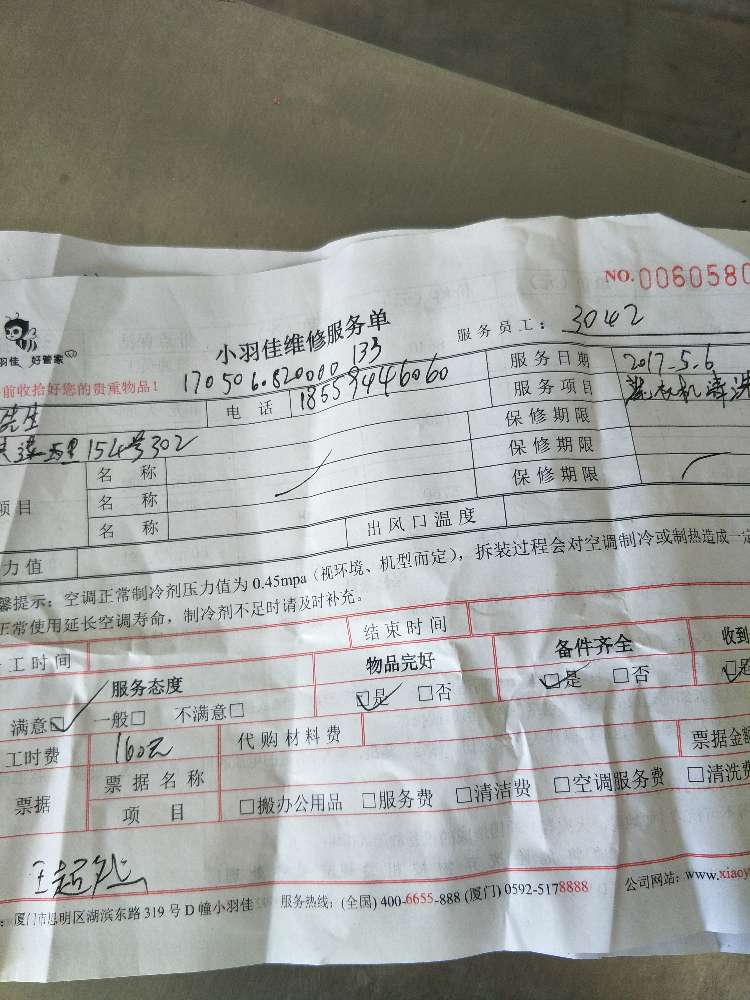 NO.0060580
羽佳 好管家
小羽佳维修服务单
服务员工：3042
前收拾好您的贵重物品！
170506.820000 133
服务日期 2017.5.6
先生 电话 18559446060
服务项目 洗衣机清洗
西里154号302
保修期限
名称 保修期限
项目 名称 保修期限
名称 出风口温度
力值
馨提示：空调正常制冷剂压力值为 0.45mpa（视环境、机型而定），拆装过程会对空调制冷或制热造成一定
正常使用延长空调寿命，制冷剂不足时请及时补充。
工时间 结束时间
服务态度 物品完好 备件齐全 收到
满意☑ 一般□ 不满意□ ☑是 □否 ☑是 □否 ☑是
工时费 160元 代购材料费 票据金额
票据 票据名称
项目 □搬办公用品 □服务费 □清洁费 □空调服务费 □清洗费
：厦门市思明区湖滨东路 319 号 D 幢小羽佳 服务热线：(全国) 400-6655-888 (厦门) 0592-5178888 公司网站：www.xiaoy